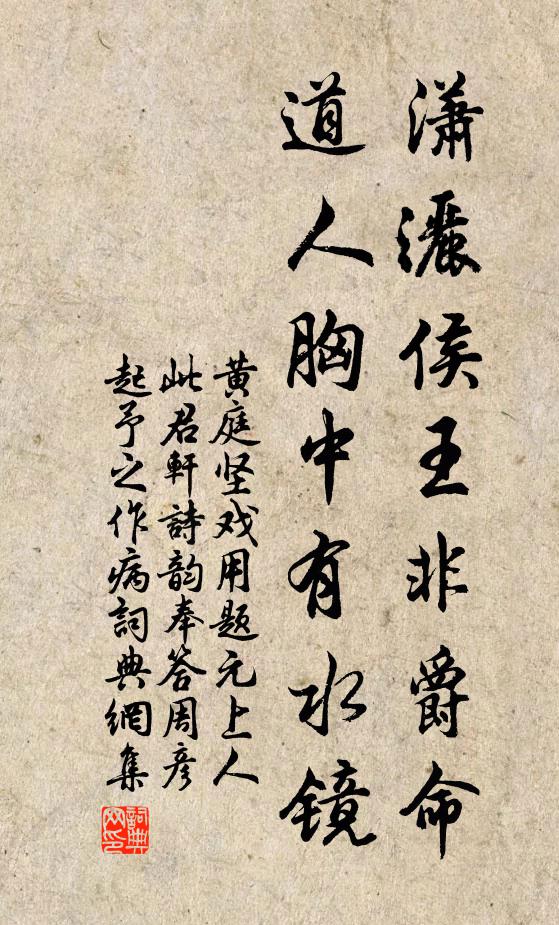 瀟灑侯王非爵命
道人胸中有水镜
黄庭坚戏用题元上人
此君軒詩韵奉答周彦
起予之作病詞典網集
詞典网印